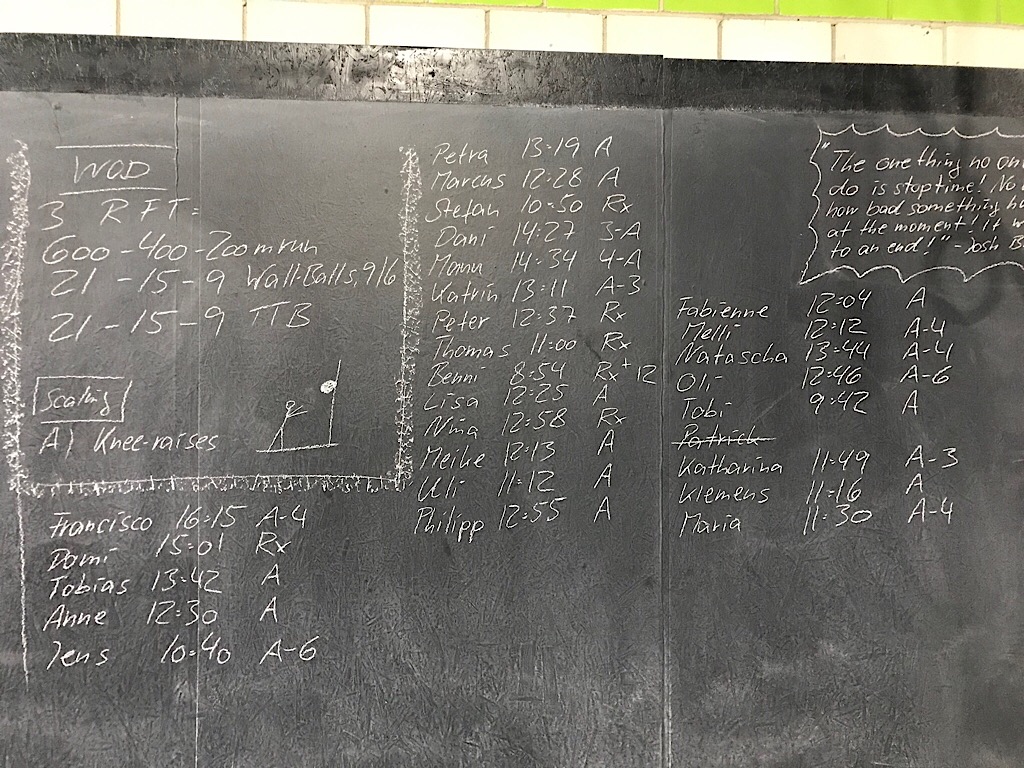 WOD
3 RFT:
600-400-200m run
21-15-9 Wall-Balls, 9/6
21-15-9 TTB
Scaling
A) Knee-raises
Francisco 16:15 A-4
Domi 15:01 Rx
Tobias 13:42 A
Anne 12:30 A
Jens 10:40 A-6
Petra 13:19 A
Marcus 12:28 A
Stefan 10:50 Rx
Dani 14:27 3-A
Manu 14:34 4-A
Katrin 13:11 A-3
Peter 12:37 Rx
Thomas 11:00 Rx
Benni 8:54 Rx+12
Lisa 12:25 A
Nina 12:58 Rx
Meike 12:13 A
Uli 11:12 A
Philipp 12:55 A
"The one thing no on
do is stop time! No
how bad something ha
at the moment! It w
to an end!" - Josh B
Fabienne 12:04 A
Melli 12:12 A-4
Natascha 13:44 A-4
Oli 12:46 A-6
Tobi 9:42 A
Patrick
Katharina 11:49 A-3
Klemens 11:16 A
Maria 11:30 A-4